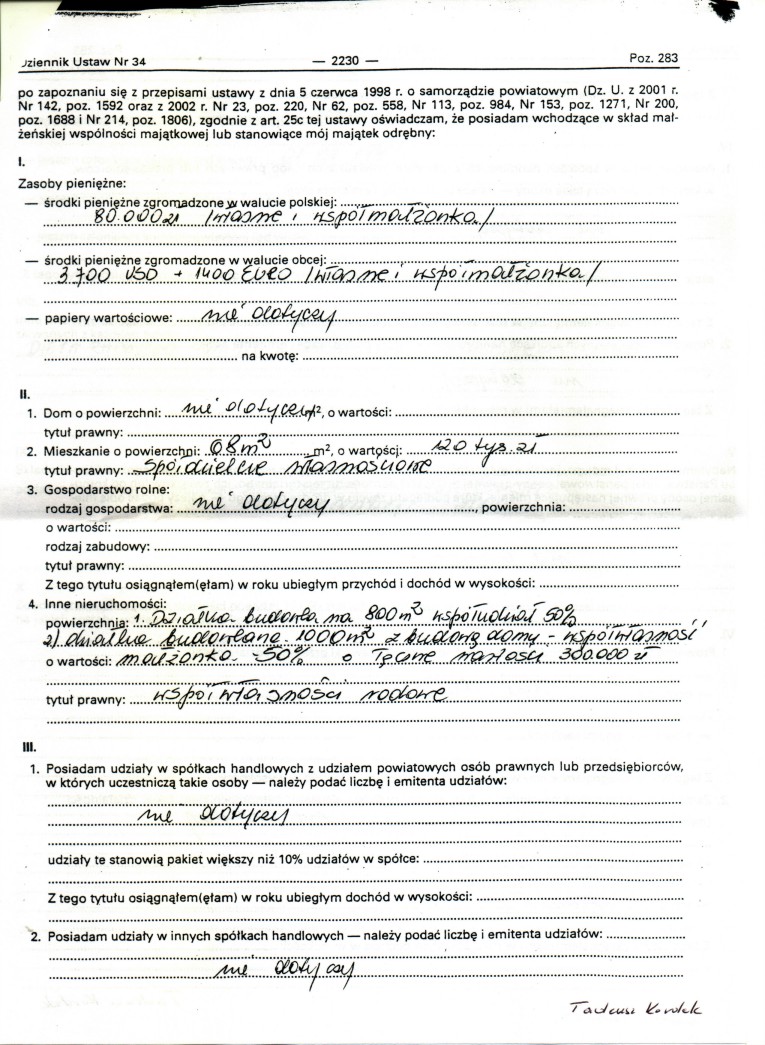 Dziennik Ustaw Nr 34 — 2230 — Poz. 283
po zapoznaniu się z przepisami ustawy z dnia 5 czerwca 1998 r. o samorządzie powiatowym (Dz. U. z 2001 r.
Nr 142, poz. 1592 oraz z 2002 r. Nr 23, poz. 220, Nr 62, poz. 558, Nr 113, poz. 984, Nr 153, poz. 1271, Nr 200,
poz. 1688 i Nr 214, poz. 1806), zgodnie z art. 25c tej ustawy oświadczam, że posiadam wchodzące w skład mał-
żeńskiej wspólności majątkowej lub stanowiące mój majątek odrębny:
I.
Zasoby pieniężne:
— środki pieniężne zgromadzone w walucie polskiej:
80.000 zł /własne i współmałżonka/
— środki pieniężne zgromadzone w walucie obcej:
3.700 USD + 1400 EURO /własne i współmałżonka/
— papiery wartościowe: nie dotyczy
na kwotę:
II.
1. Dom o powierzchni: nie dotyczy m², o wartości:
tytuł prawny:
2. Mieszkanie o powierzchni: 68 m² m², o wartości: 120 tys. zł
tytuł prawny: spółdzielcze własnościowe
3. Gospodarstwo rolne:
rodzaj gospodarstwa: nie dotyczy, powierzchnia:
o wartości:
rodzaj zabudowy:
tytuł prawny:
Z tego tytułu osiągnąłem(ęłam) w roku ubiegłym przychód i dochód w wysokości:
4. Inne nieruchomości:
powierzchnia: 1. Działka budowlana 800 m² współudział 50%
2) działka budowlana 1000 m² z budową domu - współwłasność
o wartości: małżonka - 50% o łącznej wartości 300.000 zł
tytuł prawny: współwłasności
III.
1. Posiadam udziały w spółkach handlowych z udziałem powiatowych osób prawnych lub przedsiębiorców,
w których uczestniczą takie osoby — należy podać liczbę i emitenta udziałów:
nie dotyczy
udziały te stanowią pakiet większy niż 10% udziałów w spółce:
Z tego tytułu osiągnąłem(ęłam) w roku ubiegłym dochód w wysokości:
2. Posiadam udziały w innych spółkach handlowych — należy podać liczbę i emitenta udziałów:
nie dotyczy
Tadeusz Kordek